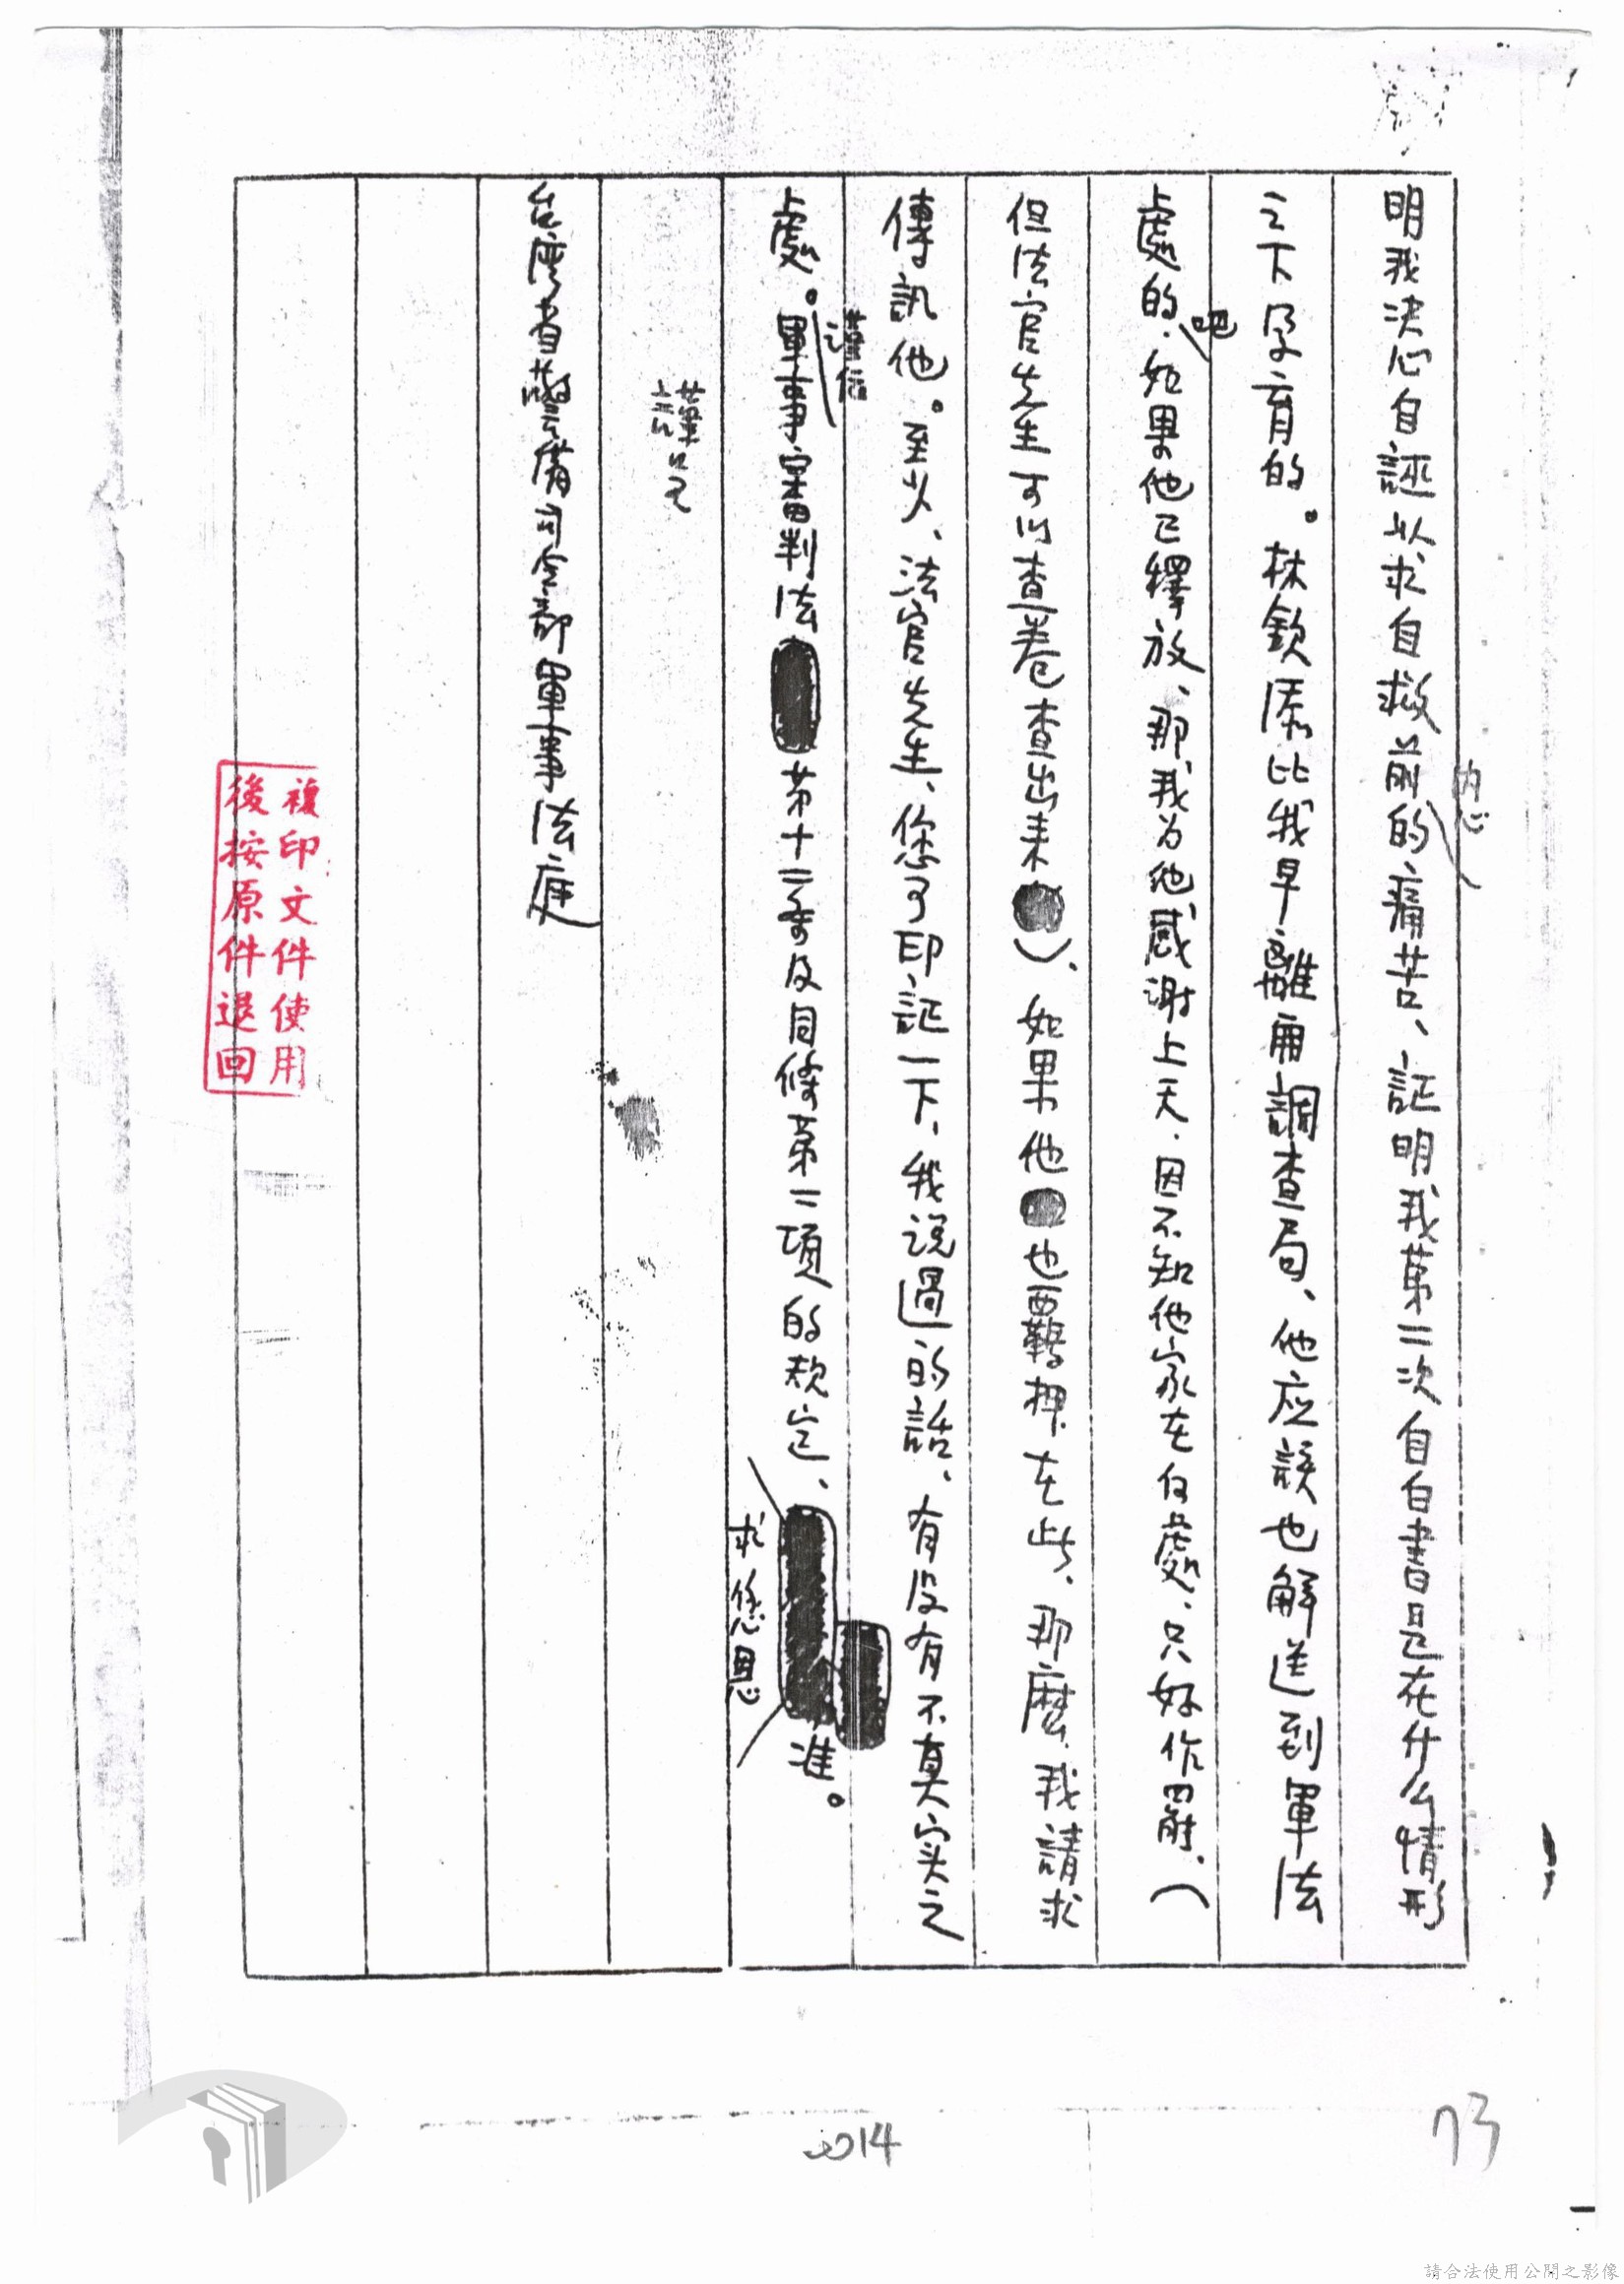 明我決心自誣以求自救前的內心痛苦、証明我第二次自白書是在什么情形
之下孕育的。林欽添比我早離開調查局、他应該也解送到軍法
處的吧、如果他已釋放、那我为他感谢上天、因不知他家在何處、只好作罷、（
但法官先生可以查卷查出来）、如果他也覊押在此、那麼、我請求
傳訊他。至少、法官先生、您可印証一下、我说過的話、有没有不真实之
處。謹依軍事審判法第十二条及同條第二項的规定、求您恩准。
謹呈
台湾省警備司令部軍事法庭
複印文件使用
後按原件退回
014
73
請合法使用公開之影像